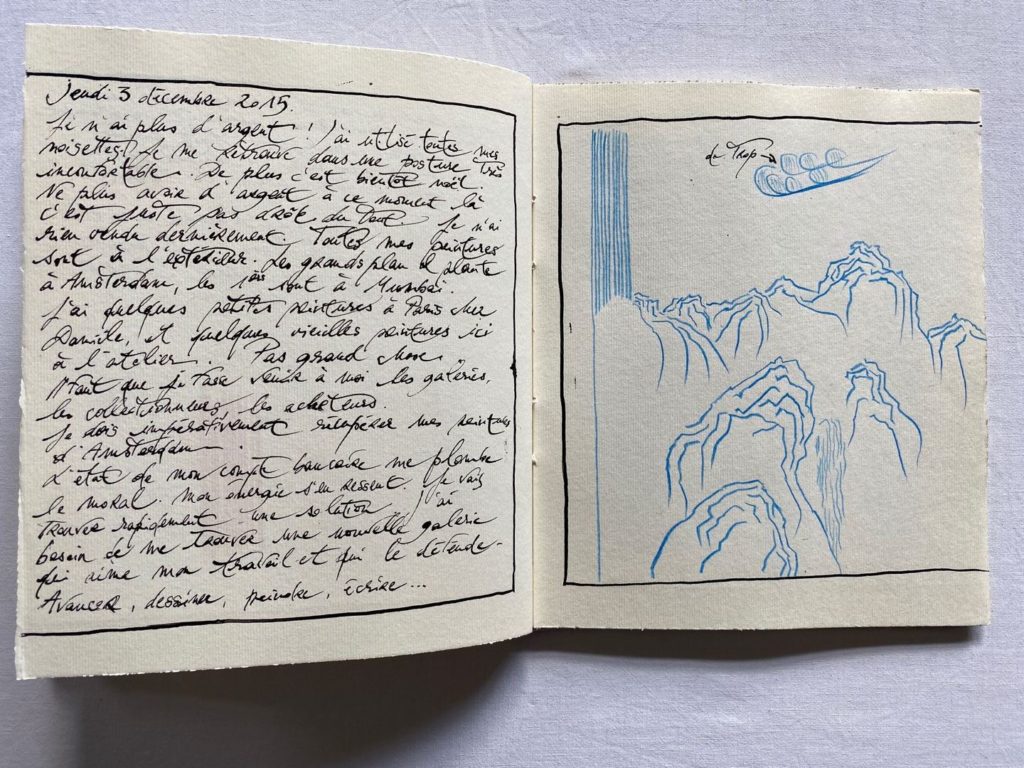 Jeudi 3 décembre 2015.
Je n'ai plus d'argent ! J'ai utilisé toutes mes
noisettes. Je me retrouve dans une posture très
incontortable. De plus c'est bientôt noël.
Ne plus avoir d'argent à ce moment là
c'est juste pas drôle du tout. Je n'ai
rien vendu dernièrement. Toutes mes peintures
sont à l'extérieur. Les grands plan & plante
à Amsterdam, les 1ers sont à Mumbai.
J'ai quelques petites peintures à Paris chez
Daniele, et quelques vieilles peintures ici
à l'atelier. Pas grand chose.
Il faut que je fasse venir à moi les galeries,
les collectionneurs, les acheteurs.
Je dois impérativement récupérer mes peintures
d'Amsterdam.
L'état de mon compte bancaire me plombe
le moral. Mon énergie s'en ressent. Je vais
trouver rapidement une solution. J'ai
besoin de me trouver une nouvelle galerie
qui aime mon travail et qui le défende.
Avancer, dessiner, peindre, écrire...
du Trop